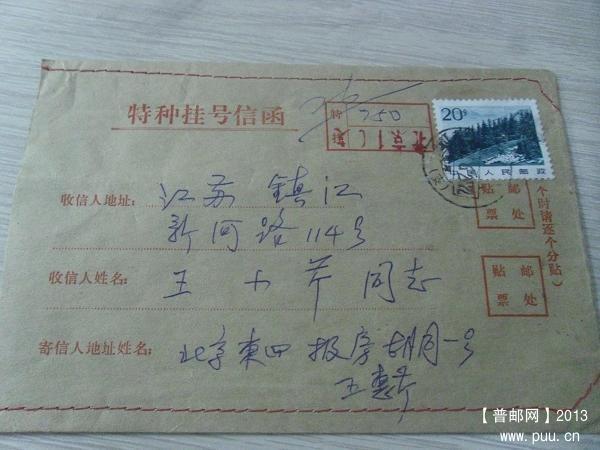 特种挂号信函
特
挂
750
20分
中国人民邮政
收信人地址:
江苏 镇江
新河路114号
收信人姓名:
王 同志
寄信人地址姓名:
北京東四 报房胡同一号
王惠
贴邮
票处
贴邮
票处
个时请逐个分贴)
【普邮网】2013
www.puu.cn